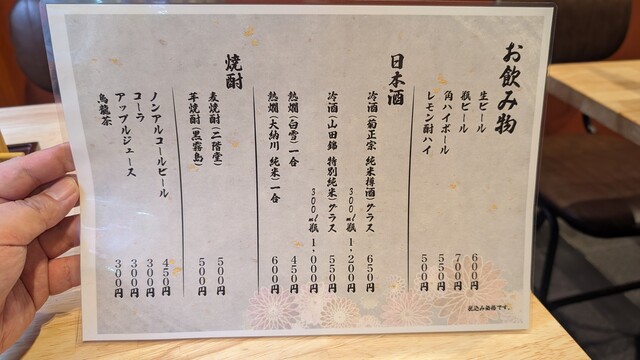 お飲み物
生ビール 600円
瓶ビール 700円
角ハイボール 550円
レモン酎ハイ 500円
日本酒
冷酒(菊正宗 純米樽酒)グラス 650円
300ml瓶 1,200円
冷酒(山田錦 特別純米)グラス 550円
300ml瓶 1,000円
熱燗(白雪)一合 450円
熱燗(大納川 純米)一合 600円
焼酎
麦焼酎(二階堂) 500円
芋焼酎(黒霧島) 500円
ノンアルコールビール 450円
コーラ 300円
アップルジュース 300円
烏龍茶 300円
税込み価格です。